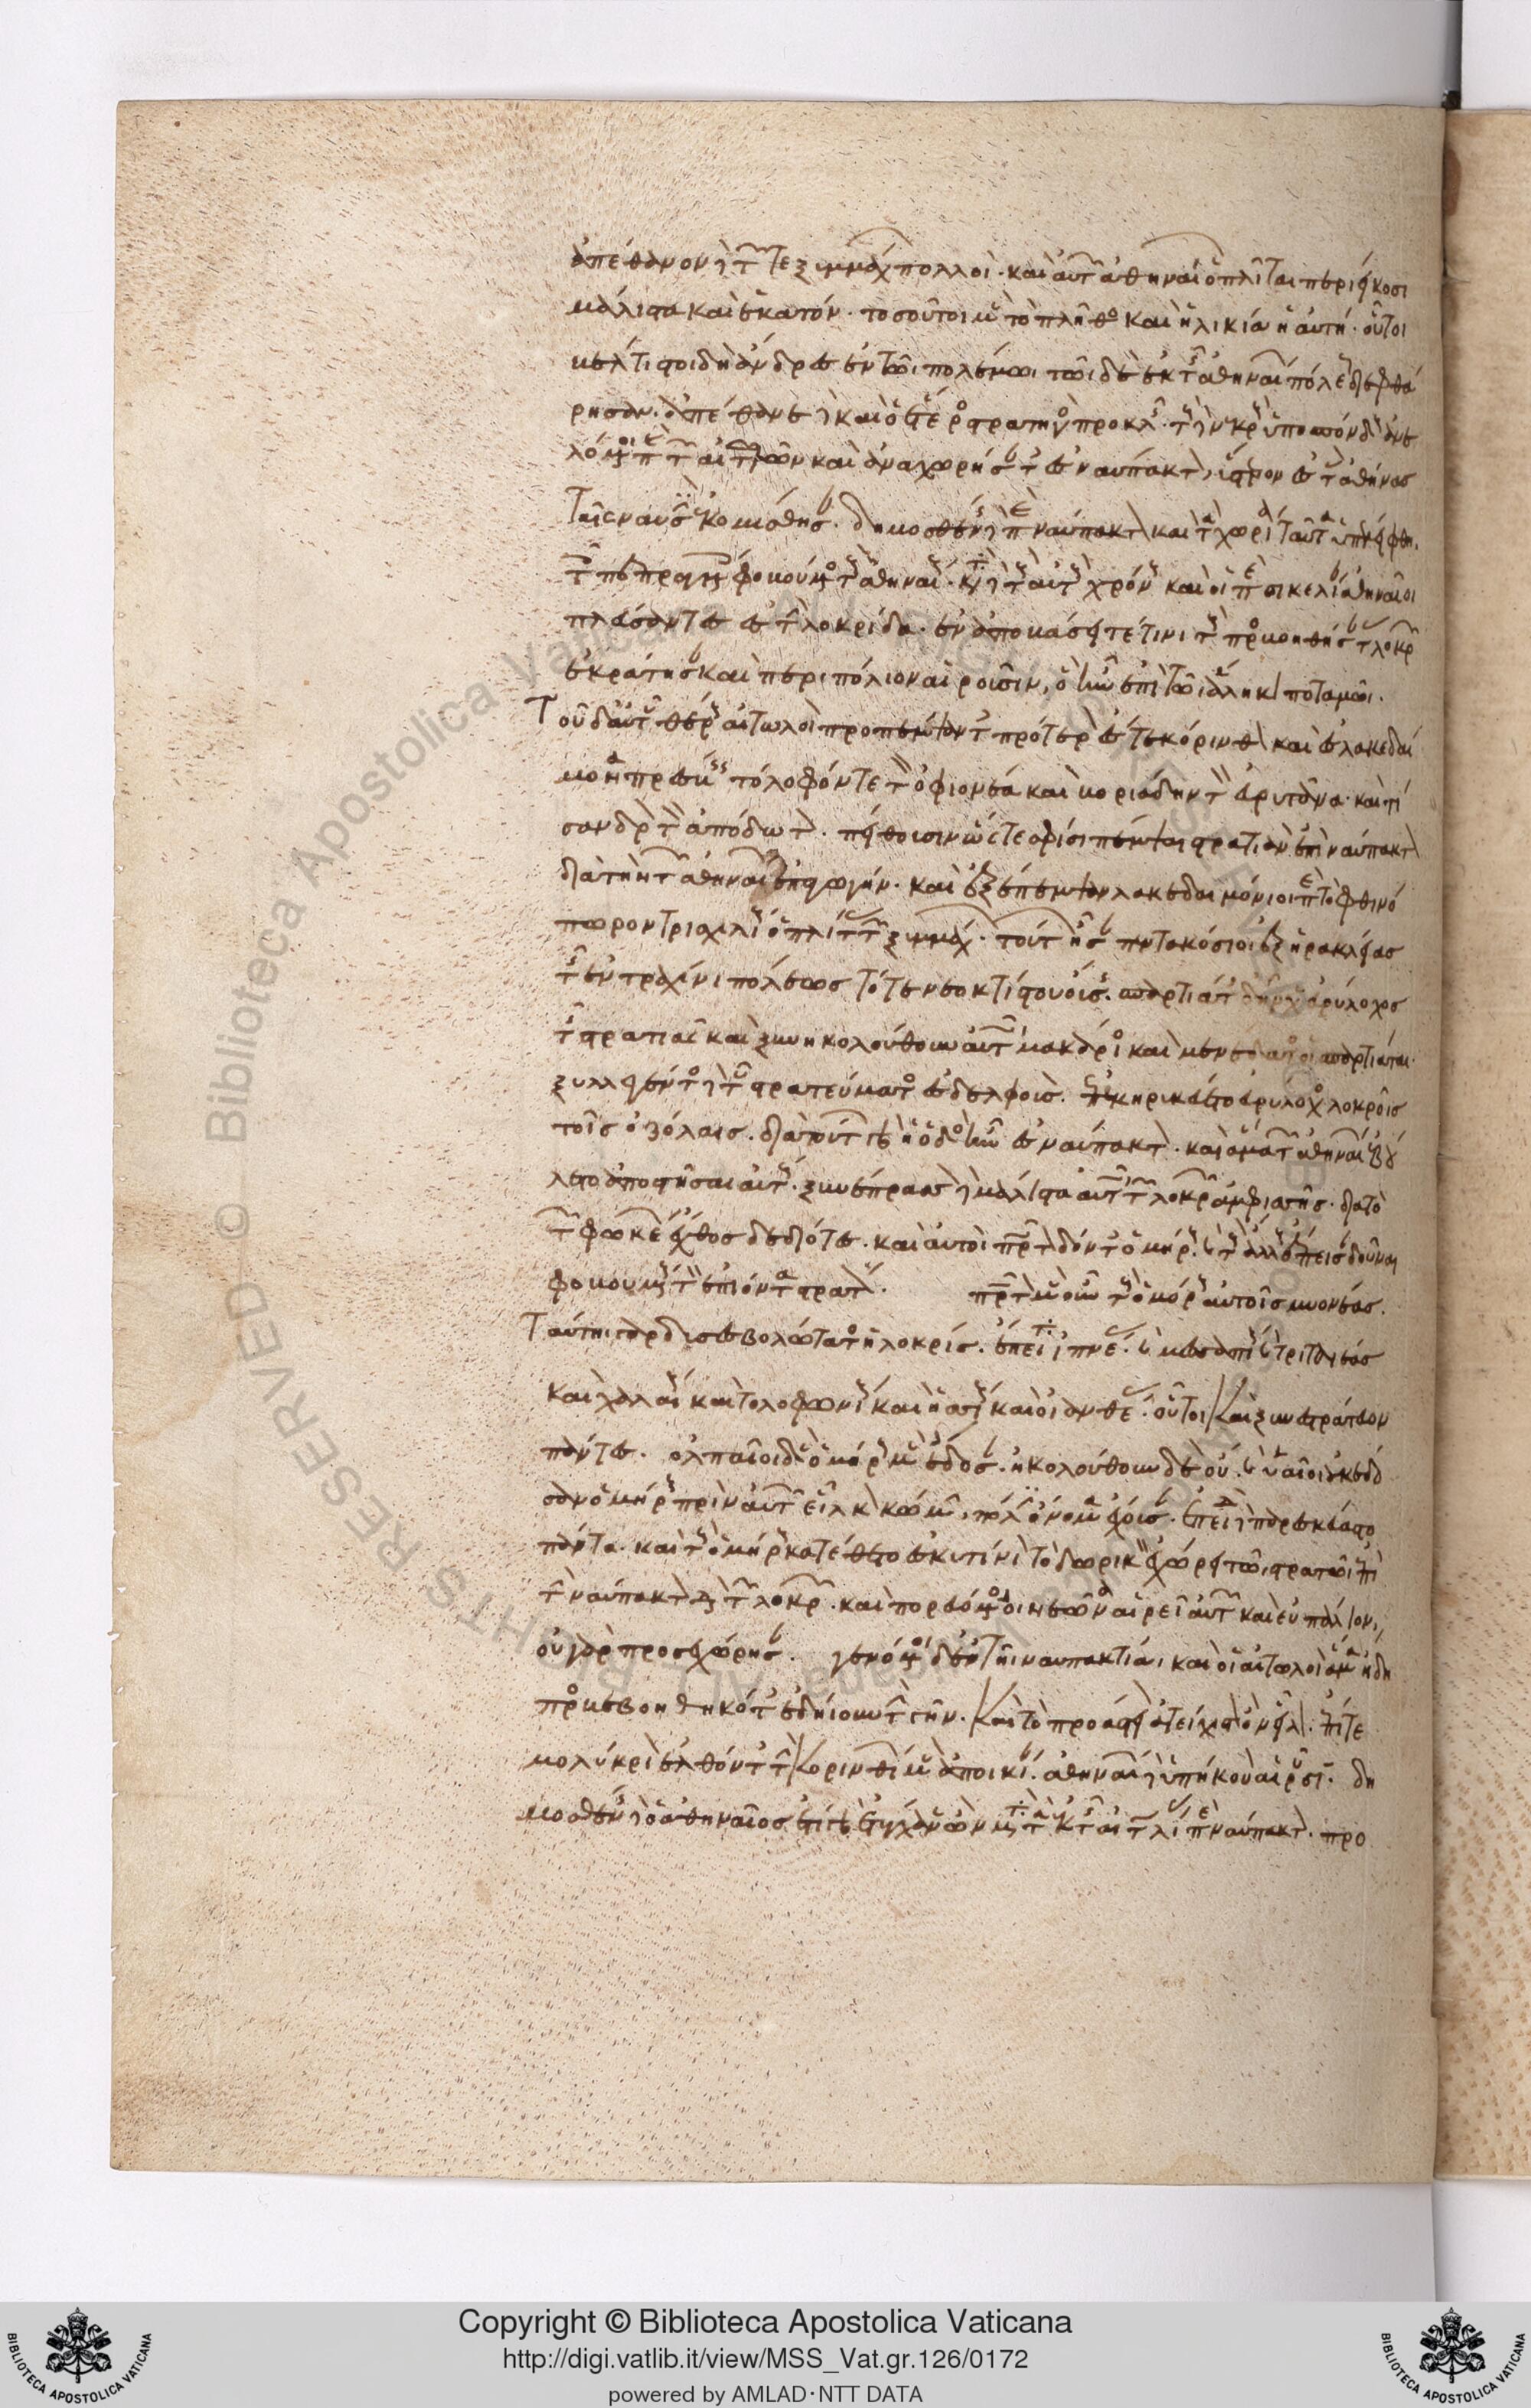 ἀπέθανον δὲ τῶν τε ξυμμάχων πολλοὶ· καὶ αὐτῶν ἀθηναίων ὁπλῖται περὶ εἴκοσι
μάλιστα καὶ ἑκατόν· τοσοῦτοι μὲν τὸ πλῆθος καὶ ἡλικία ἡ αὐτή· οὗτοι
βέλτιστοι δὴ ἄνδρες ἐν τῶι πολέμωι τῶιδε ἐκ τῆς ἀθηναίων πόλεως διεφθά
ρησαν· ἀπέθανε δὲ καὶ ὁ ἕτερος στρατηγὸς προκλῆς· τοὺς δὲ νεκροὺς ὑποσπόνδους ἀνε
λόμενοι παρὰ τῶν αἰτωλῶν καὶ ἀναχωρήσαντες ἐς ναύπακτον, ὕστερον ἐς τὰς ἀθήνας
ταῖς ναυσὶν ἐκομίσθησαν· δημοσθένης δὲ περὶ ναύπακτον καὶ τὰ χωρία ταῦτα ὑπελείφθη,
τοῖς πεπραγμένοις φοβούμενος τοὺς ἀθηναίους· κατὰ δὲ τοὺς αὐτοὺς χρόνους καὶ οἱ περὶ σικελίαν ἀθηναῖοι
πλεύσαντες ἐς τὴν λοκρίδα· ἐν ἀποβάσει τέ τινι τοὺς προσβοηθήσαντας λοκρῶν
ἐκράτησαν καὶ περιπόλιον αἱροῦσιν, ὃ ἦν ἐπὶ τῶι ἄληκι ποταμῶι.
Τοῦ δ' αὐτοῦ θέρους αἰτωλοὶ προπέμψαντες πρότερον ἔς τε κόρινθον καὶ ἐς λακεδαί
μονα πρέσβεις τόλοφόν τε τὸν ὀφιονέα καὶ βοριάδην τὸν εὐρυτᾶνα· καὶ τί
σανδρον τὸν ἀποδωτόν· πείθουσιν ὥστε σφίσι πέμψαι στρατιὰν ἐπὶ ναύπακτον
διὰ τὴν τῶν ἀθηναίων ἐπαγωγήν· καὶ ἐξέπεμψαν λακεδαιμόνιοι περὶ τὸ φθινό
πωρον τρισχιλίους ὁπλίτας τῶν ξυμμάχων· τούτων ἦσαν πεντακόσιοι ἐξ ἡρακλείας
τῆς ἐν τραχῖνι πόλεως τότε νεοκτίστου οὔσης· σπαρτιάτης δ' ἦρχεν εὐρύλοχος
τῆς στρατιᾶς καὶ ξυνηκολούθουν αὐτῶι μακάριος καὶ μενεδαῖος οἱ σπαρτιᾶται.
ξυλλεγέντος δὲ τοῦ στρατεύματος ἐς δελφοὺς· ἐπεκηρυκεύετο εὐρύλοχος λοκροῖς
τοῖς ὀζόλαις· διὰ τούτων γὰρ ἡ ὁδὸς ἦν ἐς ναύπακτον· καὶ ἅμα τῶν ἀθηναίων ἐβού
λετο ἀποστῆσαι αὐτούς· ξυνέπρασσον δὲ μάλιστα αὐτῶι τῶν λοκρῶν ἀμφισσῆς· διὰ τὸ
τῶν φωκέων ἔχθος δεδιότες· καὶ αὐτοὶ πρῶτον δόντες ὁμήρους καὶ τοὺς ἄλλους ἔπεισαν δοῦναι
φοβουμένους τὸν ἐπιόντα στρατόν· πρῶτον μὲν οὖν τοὺς ὁμόρους αὐτοῖς μυονέας.
Ταύτηι γὰρ δυσεσβολώτατος ἡ λοκρίς· ἔπειτα ἰπνέας· καὶ μεσσαπίους καὶ τριταιέας
καὶ χαλαίους καὶ τολοφωνίους καὶ ἡσσίους καὶ οἰανθέας· οὗτοι καὶ ξυνεστράτευον
πάντες· ὀλπαῖοι δὲ ὁμήρους μὲν ἔδοσαν· ἠκολούθουν δὲ οὔ· καὶ ὑαῖοι οὐκ ἔδο
σαν ὁμήρους πρὶν αὐτῶν εἷλον κώμην, πόλιν ὄνομα ἔχουσαν· ἐπειδὴ δὲ παρεσκεύαστο
πάντα· καὶ τοὺς ὁμήρους κατέθετο ἐς κυτίνιον τὸ δωρικὸν ἐχώρει τῶι στρατῶι ἐπὶ
τὴν ναύπακτον διὰ τῶν λοκρῶν· καὶ πορευόμενος οἰνεῶνα αἱρεῖ αὐτῶν καὶ εὐπάλιον,
οὐ γὰρ προσεχώρησαν· γενόμενοι δ' ἐν τῆι ναυπακτίαι καὶ οἱ αἰτωλοὶ ἅμα ἤδη
προσβεβοηθηκότες ἐδήιουν τὴν γῆν· καὶ τὸ προάστειον ἀτείχιστον ὂν εἷλον· ἐπί τε
μολύκριον ἐλθόντες τὴν κορινθίων μὲν ἀποικίαν· ἀθηναίων δὲ ὑπήκοον αἱροῦσι· δη
μοσθένης δὲ ὁ ἀθηναῖος ἔτι γὰρ ἐτύγχανεν ὢν μετὰ τὰ ἐκ τῆς αἰτωλίας περὶ ναύπακτον· προ
Copyright © Biblioteca Apostolica Vaticana
http://digi.vatlib.it/view/MSS_Vat.gr.126/0172
powered by AMLAD·NTT DATA
BIBLIOTECA APOSTOLICA VATICANA
BIBLIOTECA APOSTOLICA VATICANA